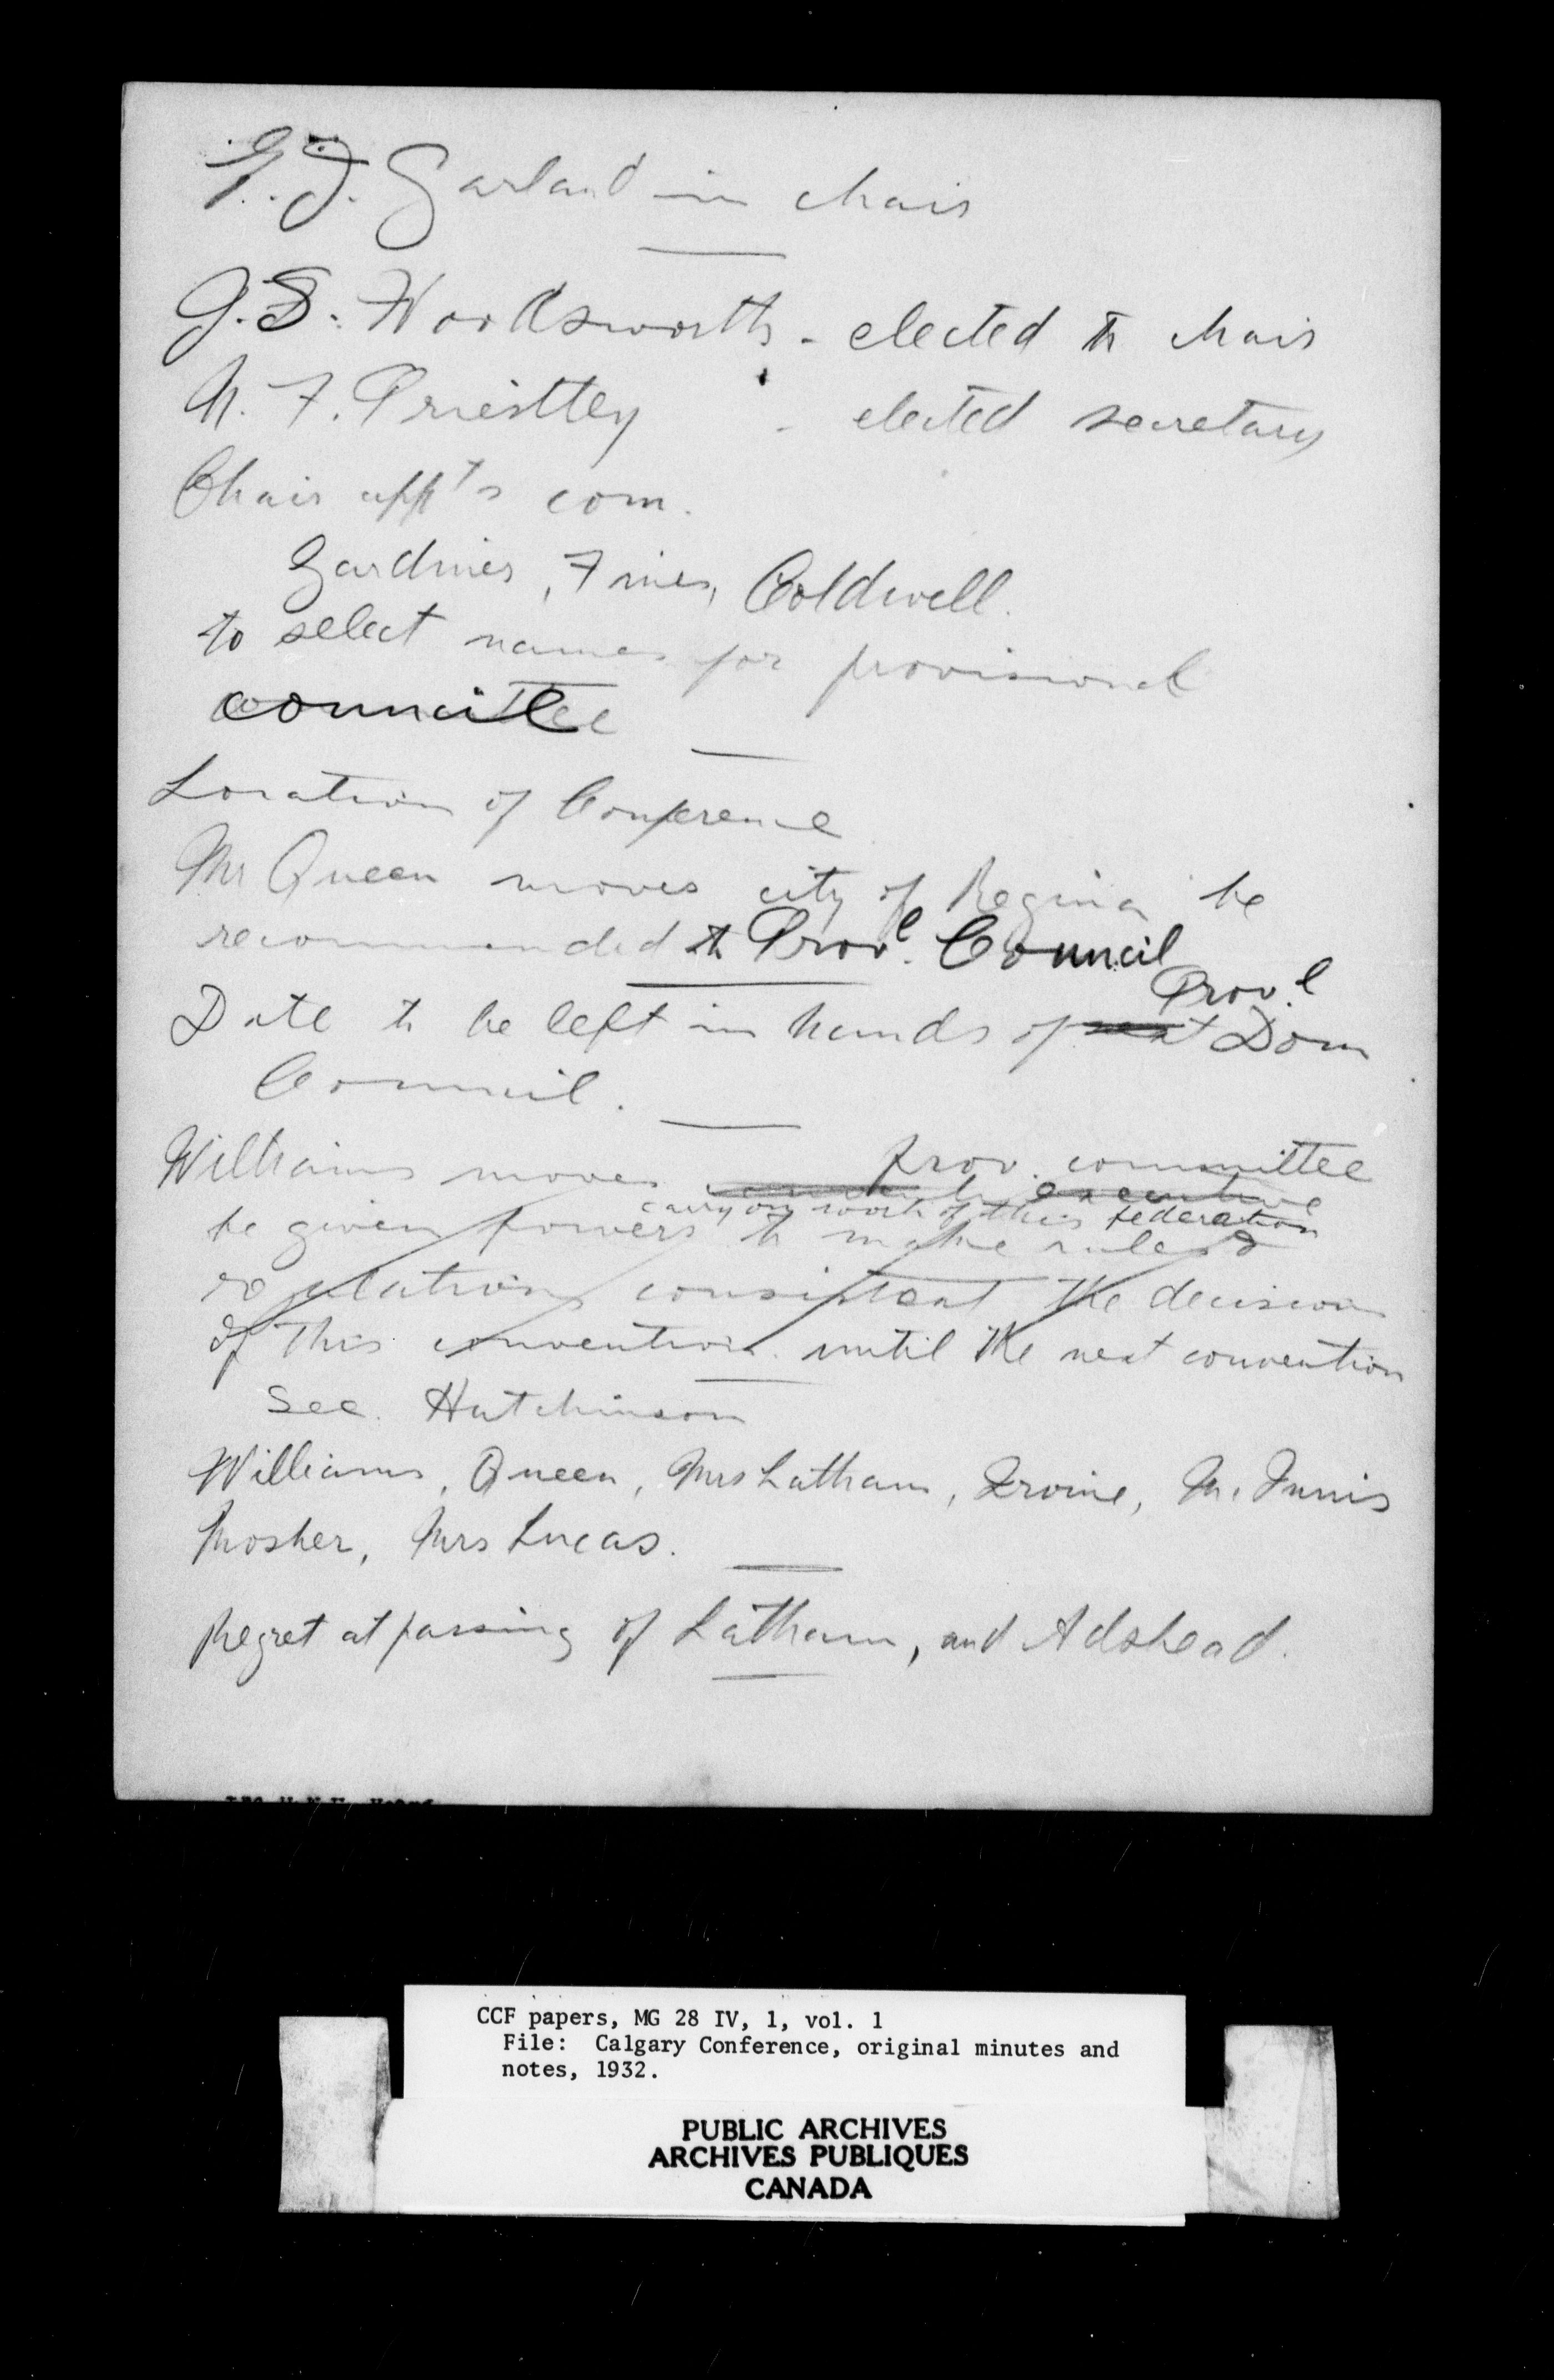 G. J. Garland in chair
J. S. Woodsworth - elected to chair
N. F. Priestley - elected secretary
Chair app't's com.
Gardiner, Fines, Coldwell.
to select names for provisional
council
Location of Conference
Mr Queen moves city of Regina be
recommended to Prov'l. Council
Prov'l
Date to be left in hands of Dom
Council.
Williams moves prov. committee
executive
carry on work of this federation
be given powers to make rules &
regulations consistent the decision
of this convention. until the next convention
See. Hutchinson
Williams, Queen, Mrs Latham, Irvine, McInnis
Mosher, Mrs Lucas.
Regret at passing of Latham, and Adshead.
CCF papers, MG 28 IV, 1, vol. 1
File: Calgary Conference, original minutes and
notes, 1932.
PUBLIC ARCHIVES
ARCHIVES PUBLIQUES
CANADA